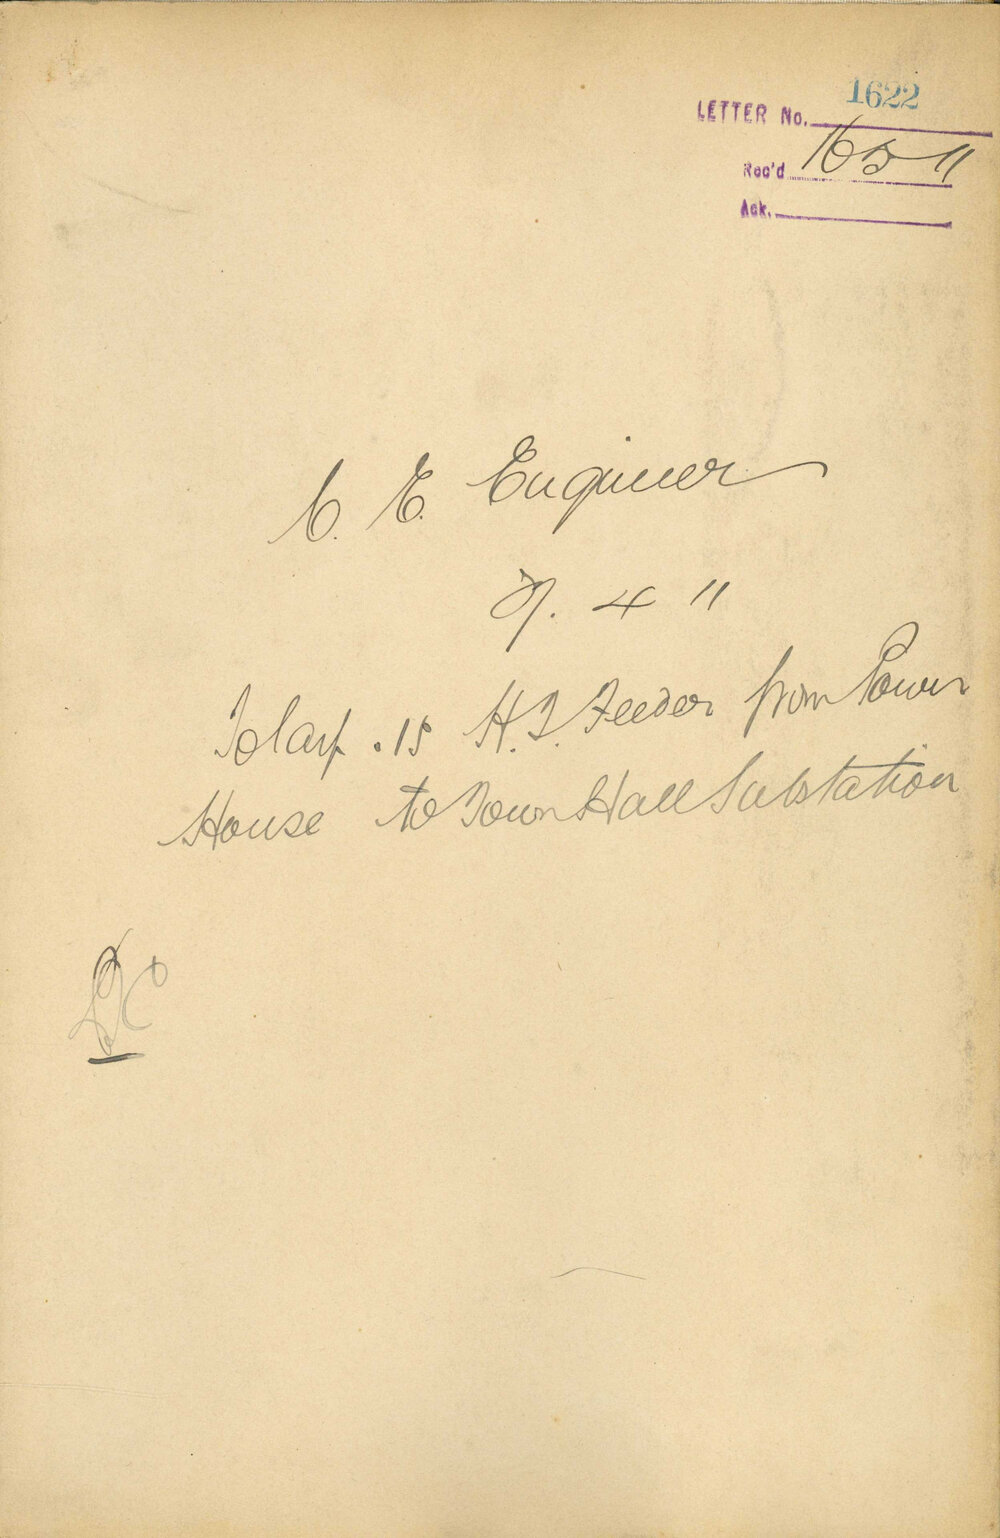 1622
LETTER No.
Rec'd 16 5 11
Ack.
C. E. Engineer
7. 4 11
To lay .15 H.T. Feeder from Power
House to Town Hall Substation